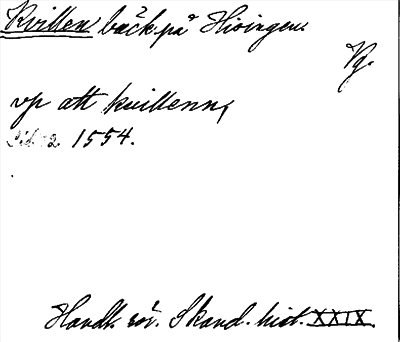 Kvillen bäck på Hisingen.
Vg.
up att kuillenn,
1554.
Handl. rör. Skand. hist. XXIX.